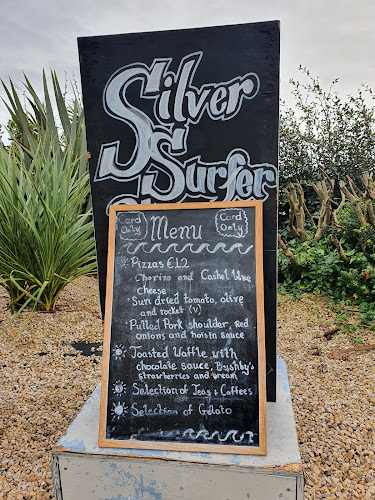 Silver
Surfer
Card
Only
Menu
Card
Only
Pizzas €12
Chorizo and Cashel blue
cheese
Sun dried tomato, olive
and rocket (v)
Pulled Pork shoulder, red
onions and hoisin sauce
Toasted Waffle with
chocolate sauce, Byshby's
strawberries and cream
Selection of Teas + Coffees
Selection of Gelato